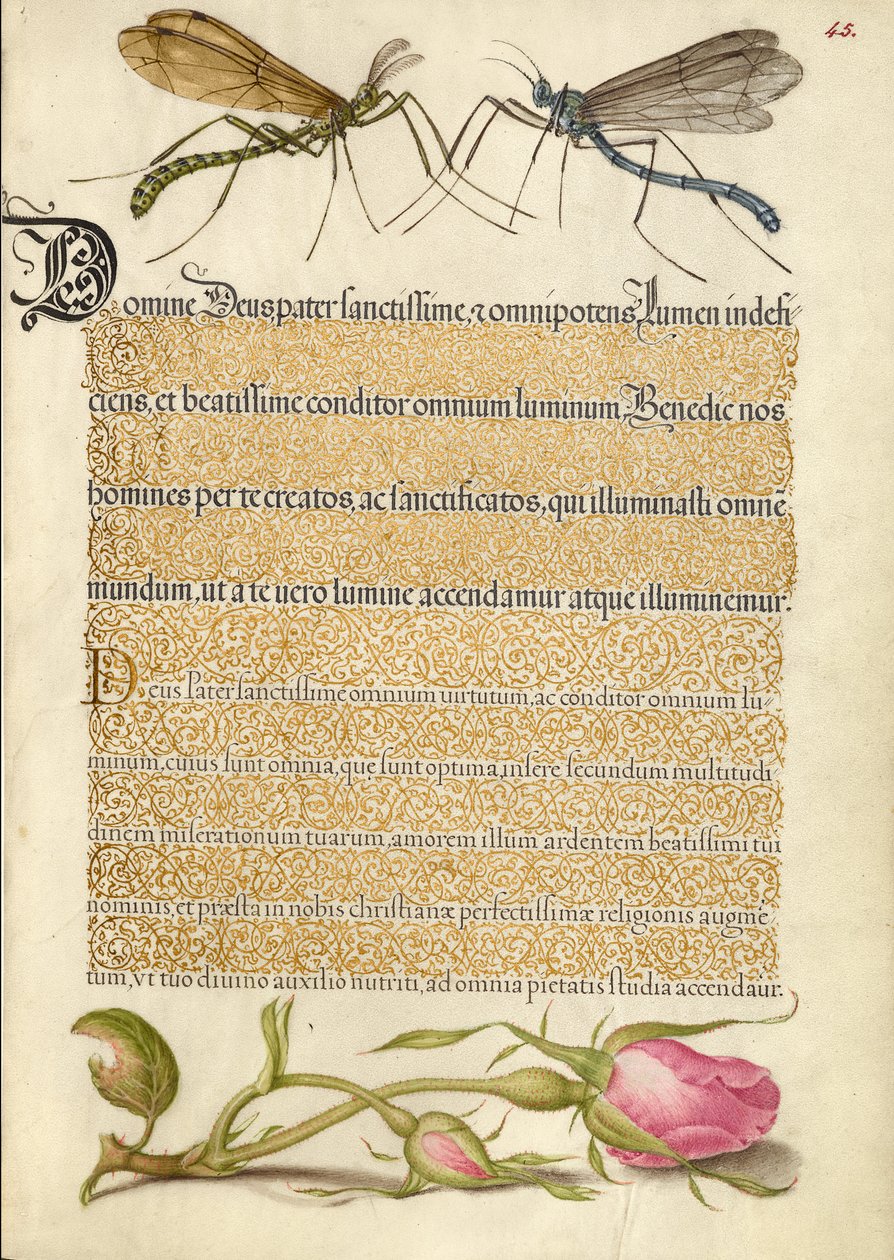 45.
Domine Deus pater sanctissime, ⁊ omnipotens Lumen indefi-
ciens, et beatissime conditor omnium luminum, Benedic nos
homines per te creatos, ac sanctificatos, qui illuminasti omnē
mundum, ut a te uero lumine accendamur atque illuminemur.
Deus Pater sanctissime omnium uirtutum, ac conditor omnium lu-
minum, cuius sunt omnia, quę sunt optima, insere secundum multitudi-
dinem miserationum tuarum, amorem illum ardentem beatissimi tui
nominis, et præsta in nobis christianæ perfectissimæ religionis augmē
tum, vt tuo diuino auxilio nutriti, ad omnia pietatis studia accendāur.